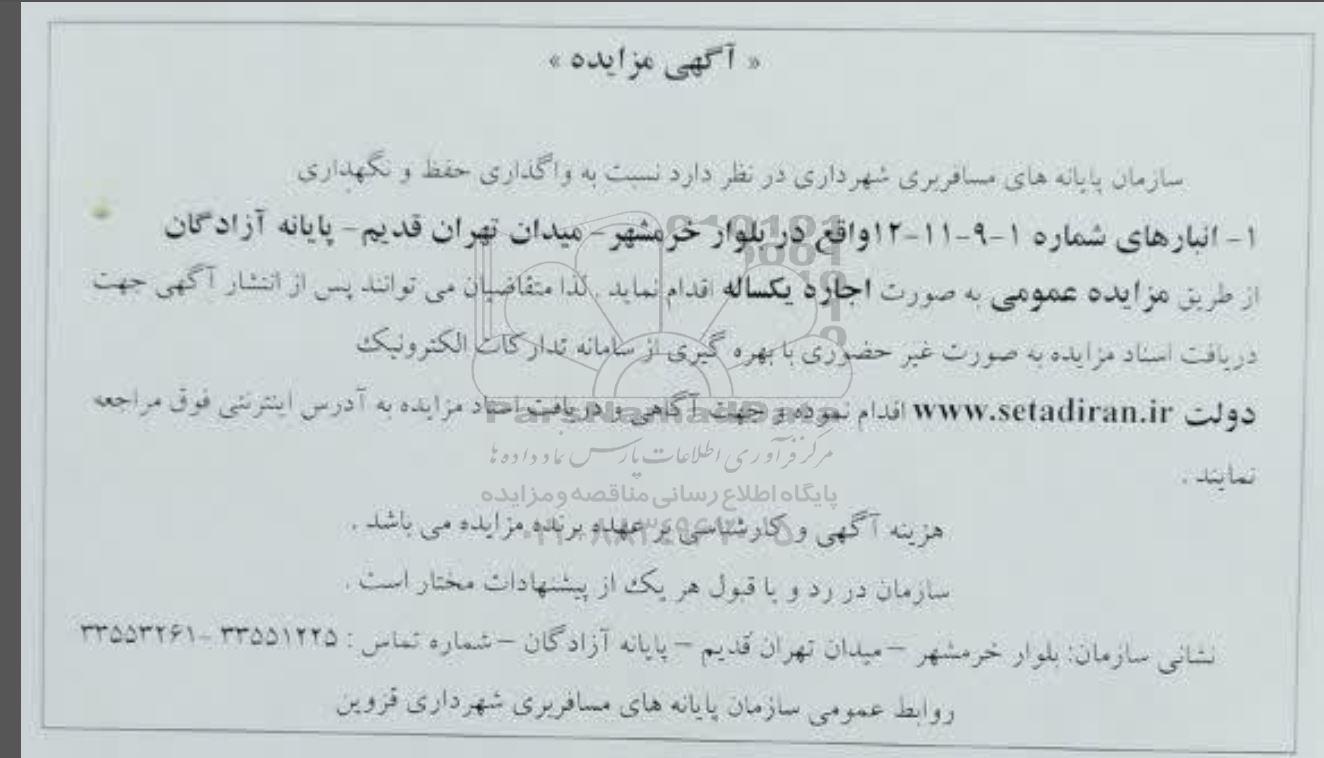 « آگهی مزایده »
سازمان پایانه های مسافربری شهرداری در نظر دارد نسبت به واگذاری حفظ و نگهداری
۱- انبارهای شماره ۱-۹-۱۱-۱۲واقع در بلوار خرمشهر- میدان تهران قدیم- پایانه آزادگان
از طریق مزایده عمومی به صورت اجاره یکساله اقدام نماید . لذا متقاضیان می توانند پس از انتشار آگهی جهت
دریافت اسناد مزایده به صورت غیر حضوری با بهره گیری از سامانه تدارکات الکترونیک
دولت www.setadiran.ir اقدام نموده و جهت آگاهی و دریافت اسناد مزایده به آدرس اینترنتی فوق مراجعه
نمایند .
هزینه آگهی و کارشناسی بر عهده برنده مزایده می باشد .
سازمان در رد و یا قبول هر یک از پیشنهادات مختار است .
نشانی سازمان: بلوار خرمشهر – میدان تهران قدیم – پایانه آزادگان – شماره تماس : ۳۳۵۵۱۲۲۵ -۳۳۵۵۳۲۶۱
روابط عمومی سازمان پایانه های مسافربری شهرداری قزوین
مرکز فرآوری اطلاعات پارس نماد داده ها
پایگاه اطلاع رسانی مناقصه و مزایده